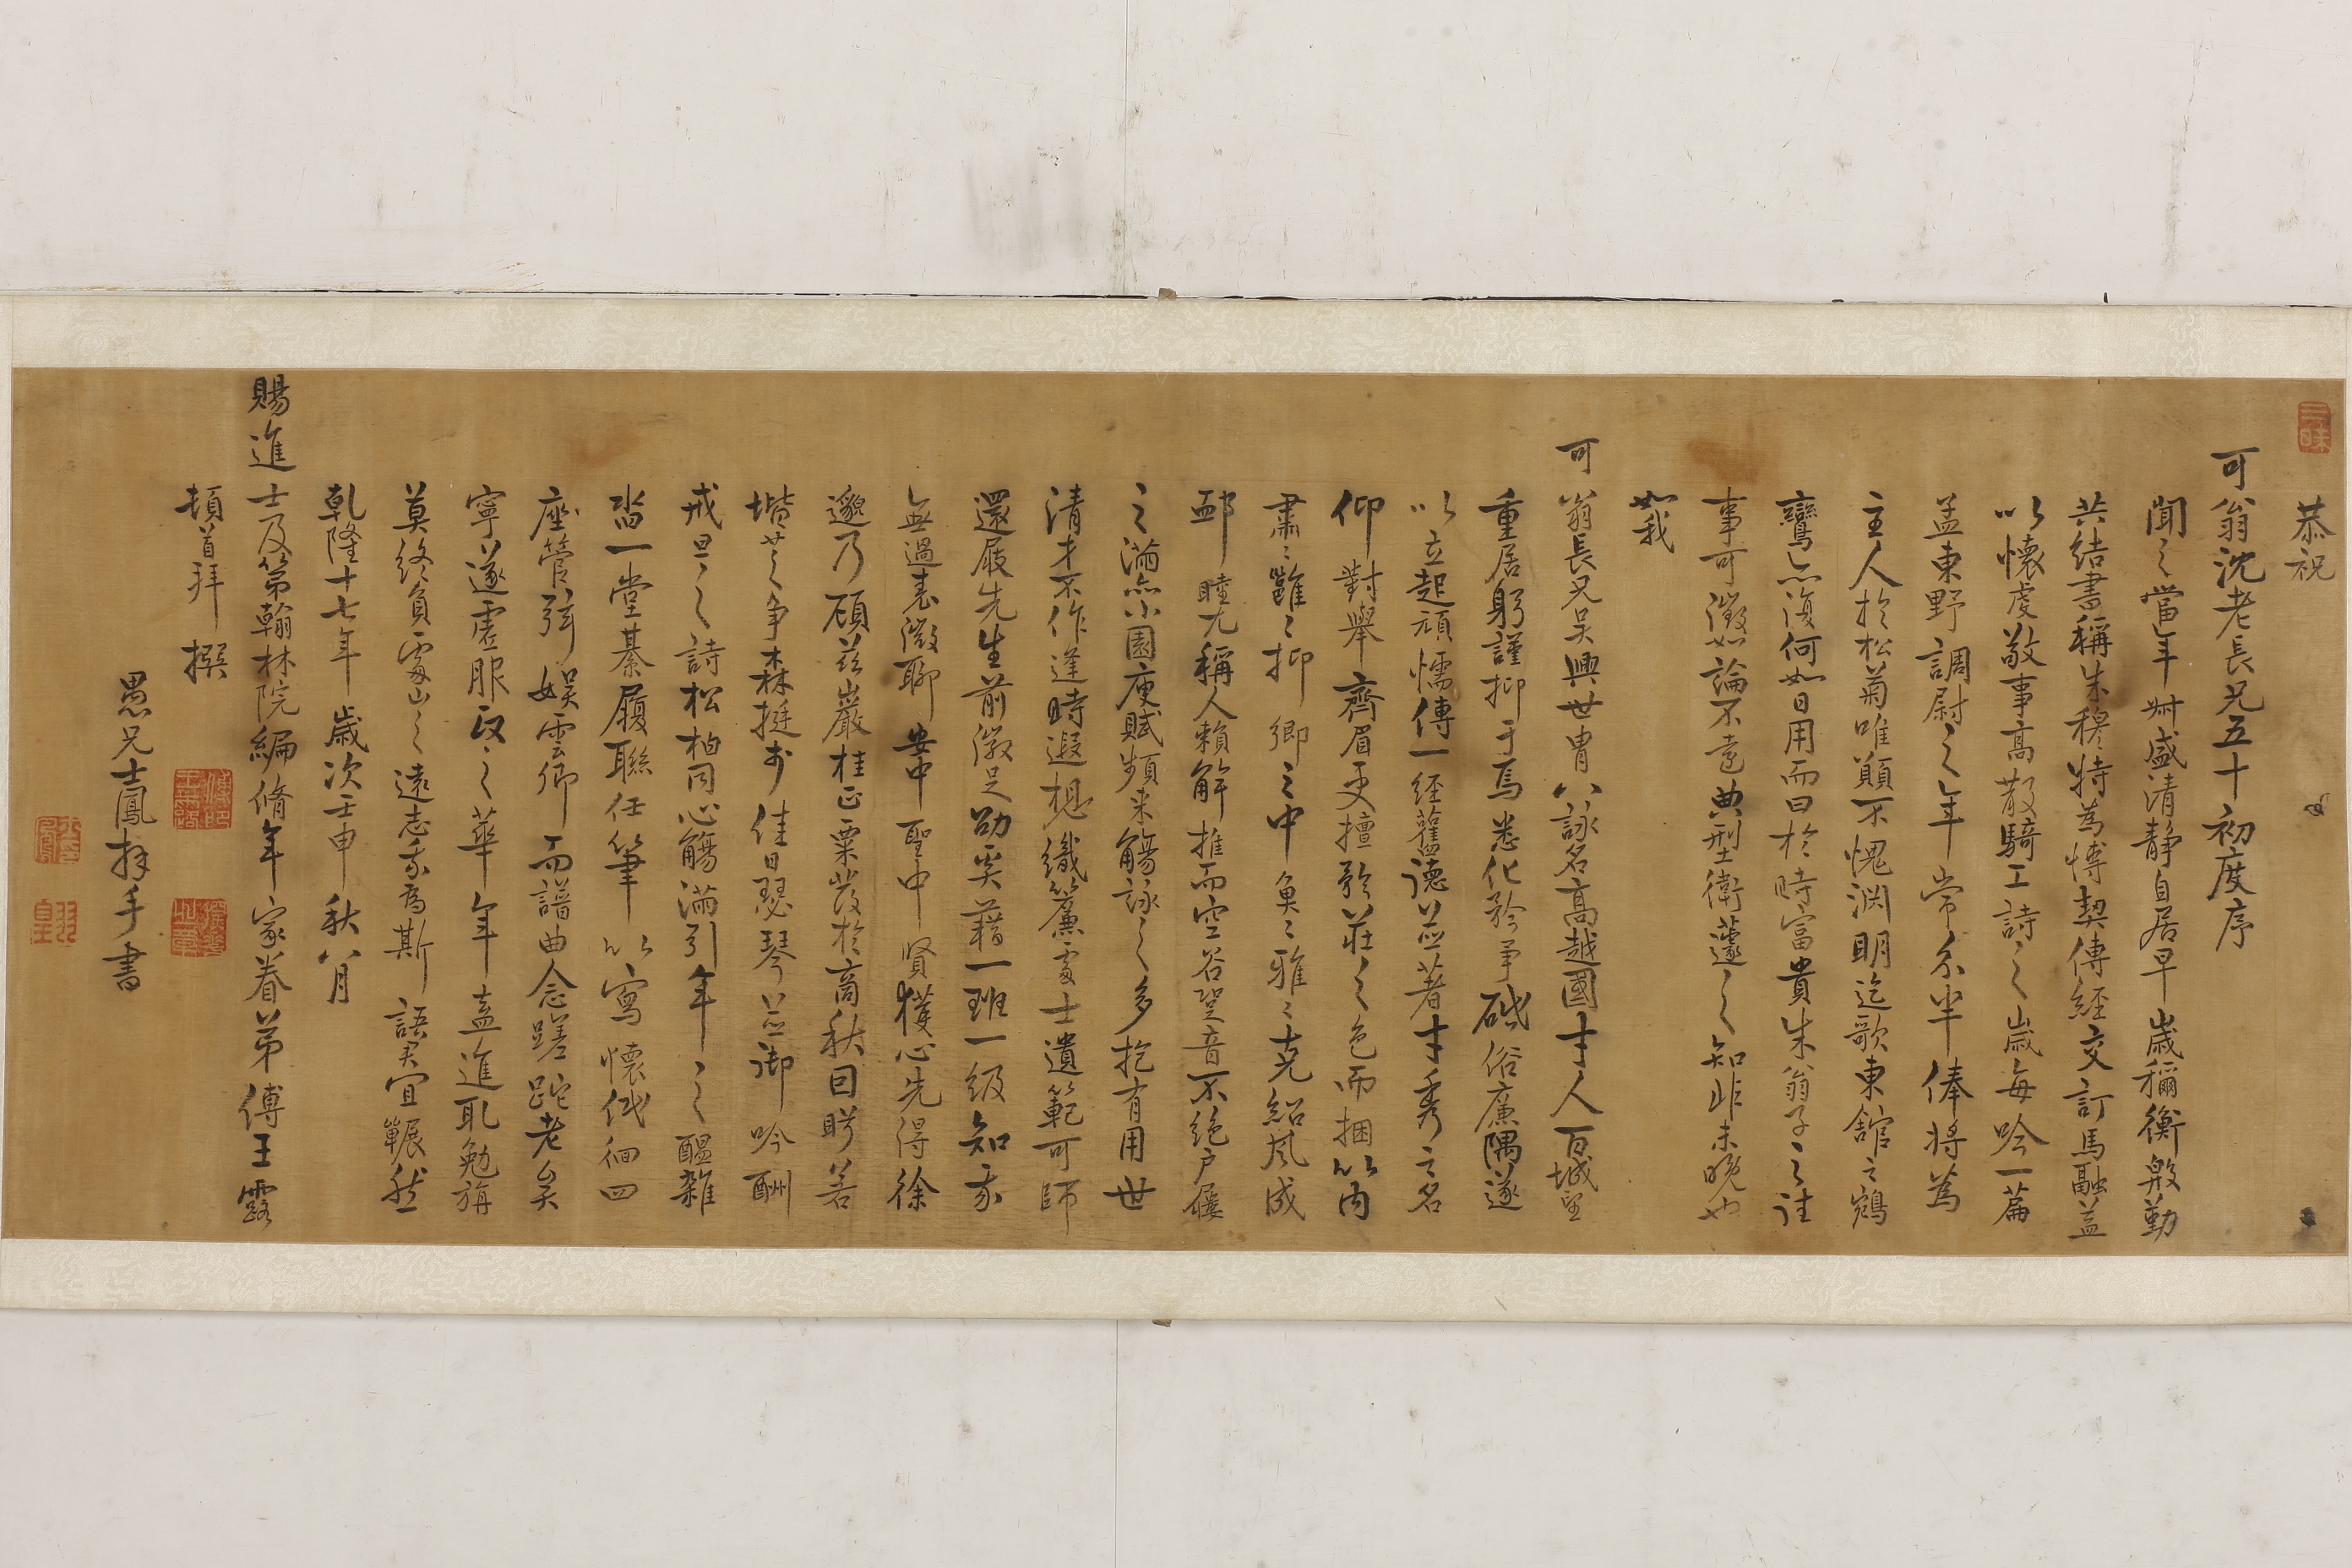 恭祝
可翁沈老長兄五十初度序
聞之當年幼盛清靜自居早歲稱衡殷勤
共結書稱朱穆特為博契傳經交訂馬融蓋
以懷虔敬事高散騎工詩之歲每吟一篇
孟東野調尉之年常分半俸將為
主人於松菊唯顛不愧淵明迄歌東舘之鵷
鸞亦復何如日用而曰於時富貴朱翁子之註
事可徵如論不遠典型衛蘧之知非未晚也
如我
可翁長兄吳興世胄八詠名高越國才人百城望
重居躬謹抑于焉悉化矜爭砥俗廉隅遂
以立起頑懦傳一經舊德並著才秀之名
仰對舉齊眉更擅矜莊之色而捆以內
肅肅雝雝抑鄉之中魚魚雅雅克紹風成
郵睦尤稱人賴解推而空谷跫音不絕戶屨
之滿亦小園庾賦頻來觴詠之多抱有用世
清才不作逢時遐想織簾處士遺範可師
還屐先生前徽足劭奚藉一班一級知我
無過表微聊安中聖中賢獲心先得徐
邈乃顧茲巖桂正粟發於高秋曰盻若
堦芝爭森挺于佳日瑟琴並御吟酬
戒旦之詩松柏同心觴滿引年之醞雜
沓一堂綦履聯任筆以寫懷低徊四
座管弦娛雲卿而譜曲念蹉跎老矣
寧遂虛服政之華年年盍進取勉旃
莫終負處山之遠志我為斯語君宜囅然
乾隆十七年歲次壬申秋八月
賜進士及第翰林院編脩年家眷弟傅王露
頓首拜撰
愚兄士鳳拜手書